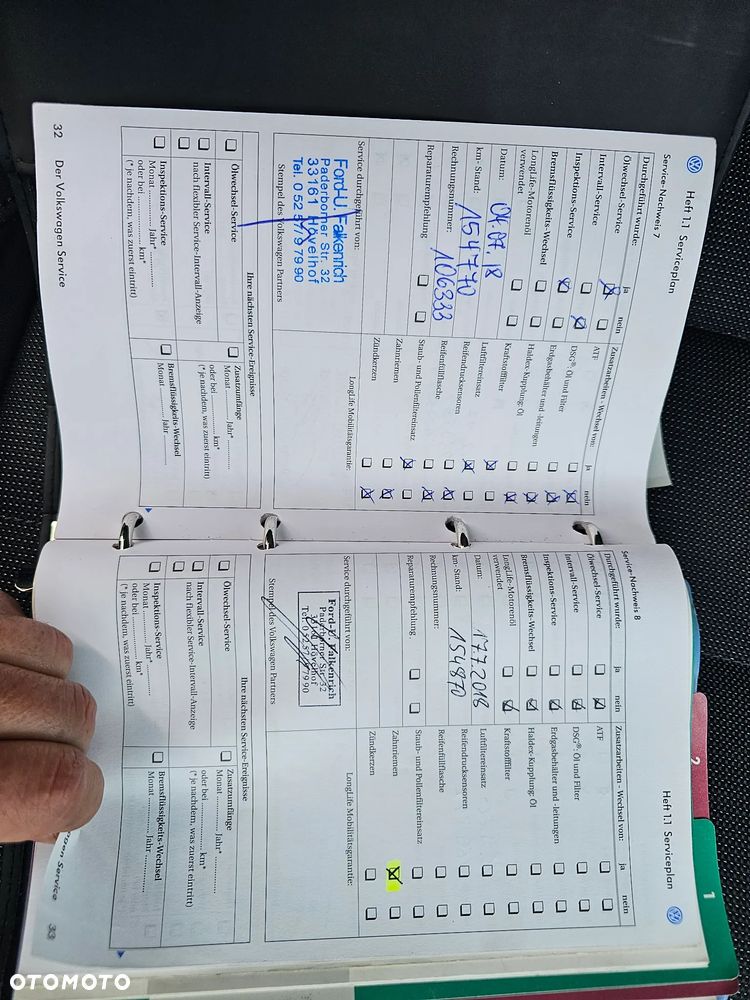 Heft 1.1 Serviceplan
Service-Nachweis 7
Durchgeführt wurde: ja nein
Ölwechsel-Service
Intervall-Service
Inspektions-Service
Bremsflüssigkeits-Wechsel
LongLife-Motorenöl
verwendet
Datum: 04.07.18
km-Stand: 154770
Rechnungsnummer: 106333
Reparaturempfehlung
Service durchgeführt von:
Ford-U. Falkenrich
Paderborner Str. 32
33161 Hövelhof
Tel. 0 52 57/9 79 90
Stempel des Volkswagen Partners
Zusatzarbeiten - Wechsel von: ja nein
ATF
DSG®: Öl und Filter
Erdgasbehälter und -leitungen
Haldex-Kupplung: Öl
Kraftstofffilter
Luftfiltereinsatz
Reifendrucksensoren
Reifenfüllflasche
Staub- und Pollenfiltereinsatz
Zahnriemen
Zündkerzen
LongLife Mobilitätsgarantie:
Ihre nächsten Service-Ereignisse
Ölwechsel-Service
Intervall-Service
nach flexibler Service-Intervall-Anzeige
Inspektions-Service
Monat .............. Jahr* ..............
oder bei .............. km*
(* je nachdem, was zuerst eintritt)
Zusatzumfänge
Monat .............. Jahr* ..............
oder bei .............. km*
(* je nachdem, was zuerst eintritt)
Bremsflüssigkeits-Wechsel
Monat .............. Jahr ..............
32 Der Volkswagen Service
Heft 1.1 Serviceplan
Service-Nachweis 8
Durchgeführt wurde: ja nein
Ölwechsel-Service
Intervall-Service
Inspektions-Service
Bremsflüssigkeits-Wechsel
LongLife-Motorenöl
verwendet
Datum: 17.7.2018
km-Stand: 154870
Rechnungsnummer:
Reparaturempfehlung
Service durchgeführt von:
Ford-U. Falkenrich
Paderborner Str. 32
33161 Hövelhof
Tel. 0 52 57/9 79 90
Stempel des Volkswagen Partners
Zusatzarbeiten - Wechsel von: ja nein
ATF
DSG®: Öl und Filter
Erdgasbehälter und -leitungen
Haldex-Kupplung: Öl
Kraftstofffilter
Luftfiltereinsatz
Reifendrucksensoren
Reifenfüllflasche
Staub- und Pollenfiltereinsatz
Zahnriemen
Zündkerzen
LongLife Mobilitätsgarantie:
Ihre nächsten Service-Ereignisse
Ölwechsel-Service
Intervall-Service
nach flexibler Service-Intervall-Anzeige
Inspektions-Service
Monat .............. Jahr* ..............
oder bei .............. km*
(* je nachdem, was zuerst eintritt)
Zusatzumfänge
Monat .............. Jahr* ..............
oder bei .............. km*
(* je nachdem, was zuerst eintritt)
Bremsflüssigkeits-Wechsel
Monat .............. Jahr ..............
Service 33
2
1
OTOMOTO